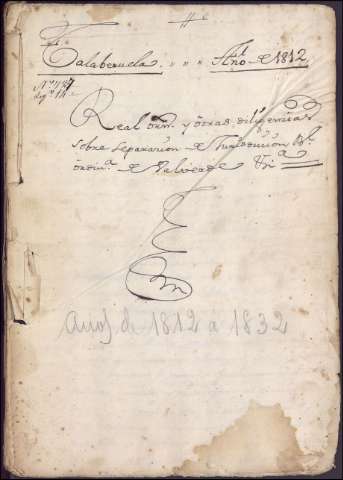 Talaberuela. Año de 1812
Real orn. y otras diligencias
sobre separacion de Jurisdiccion
ordin.ª de Valverde
años de 1812 a 1832